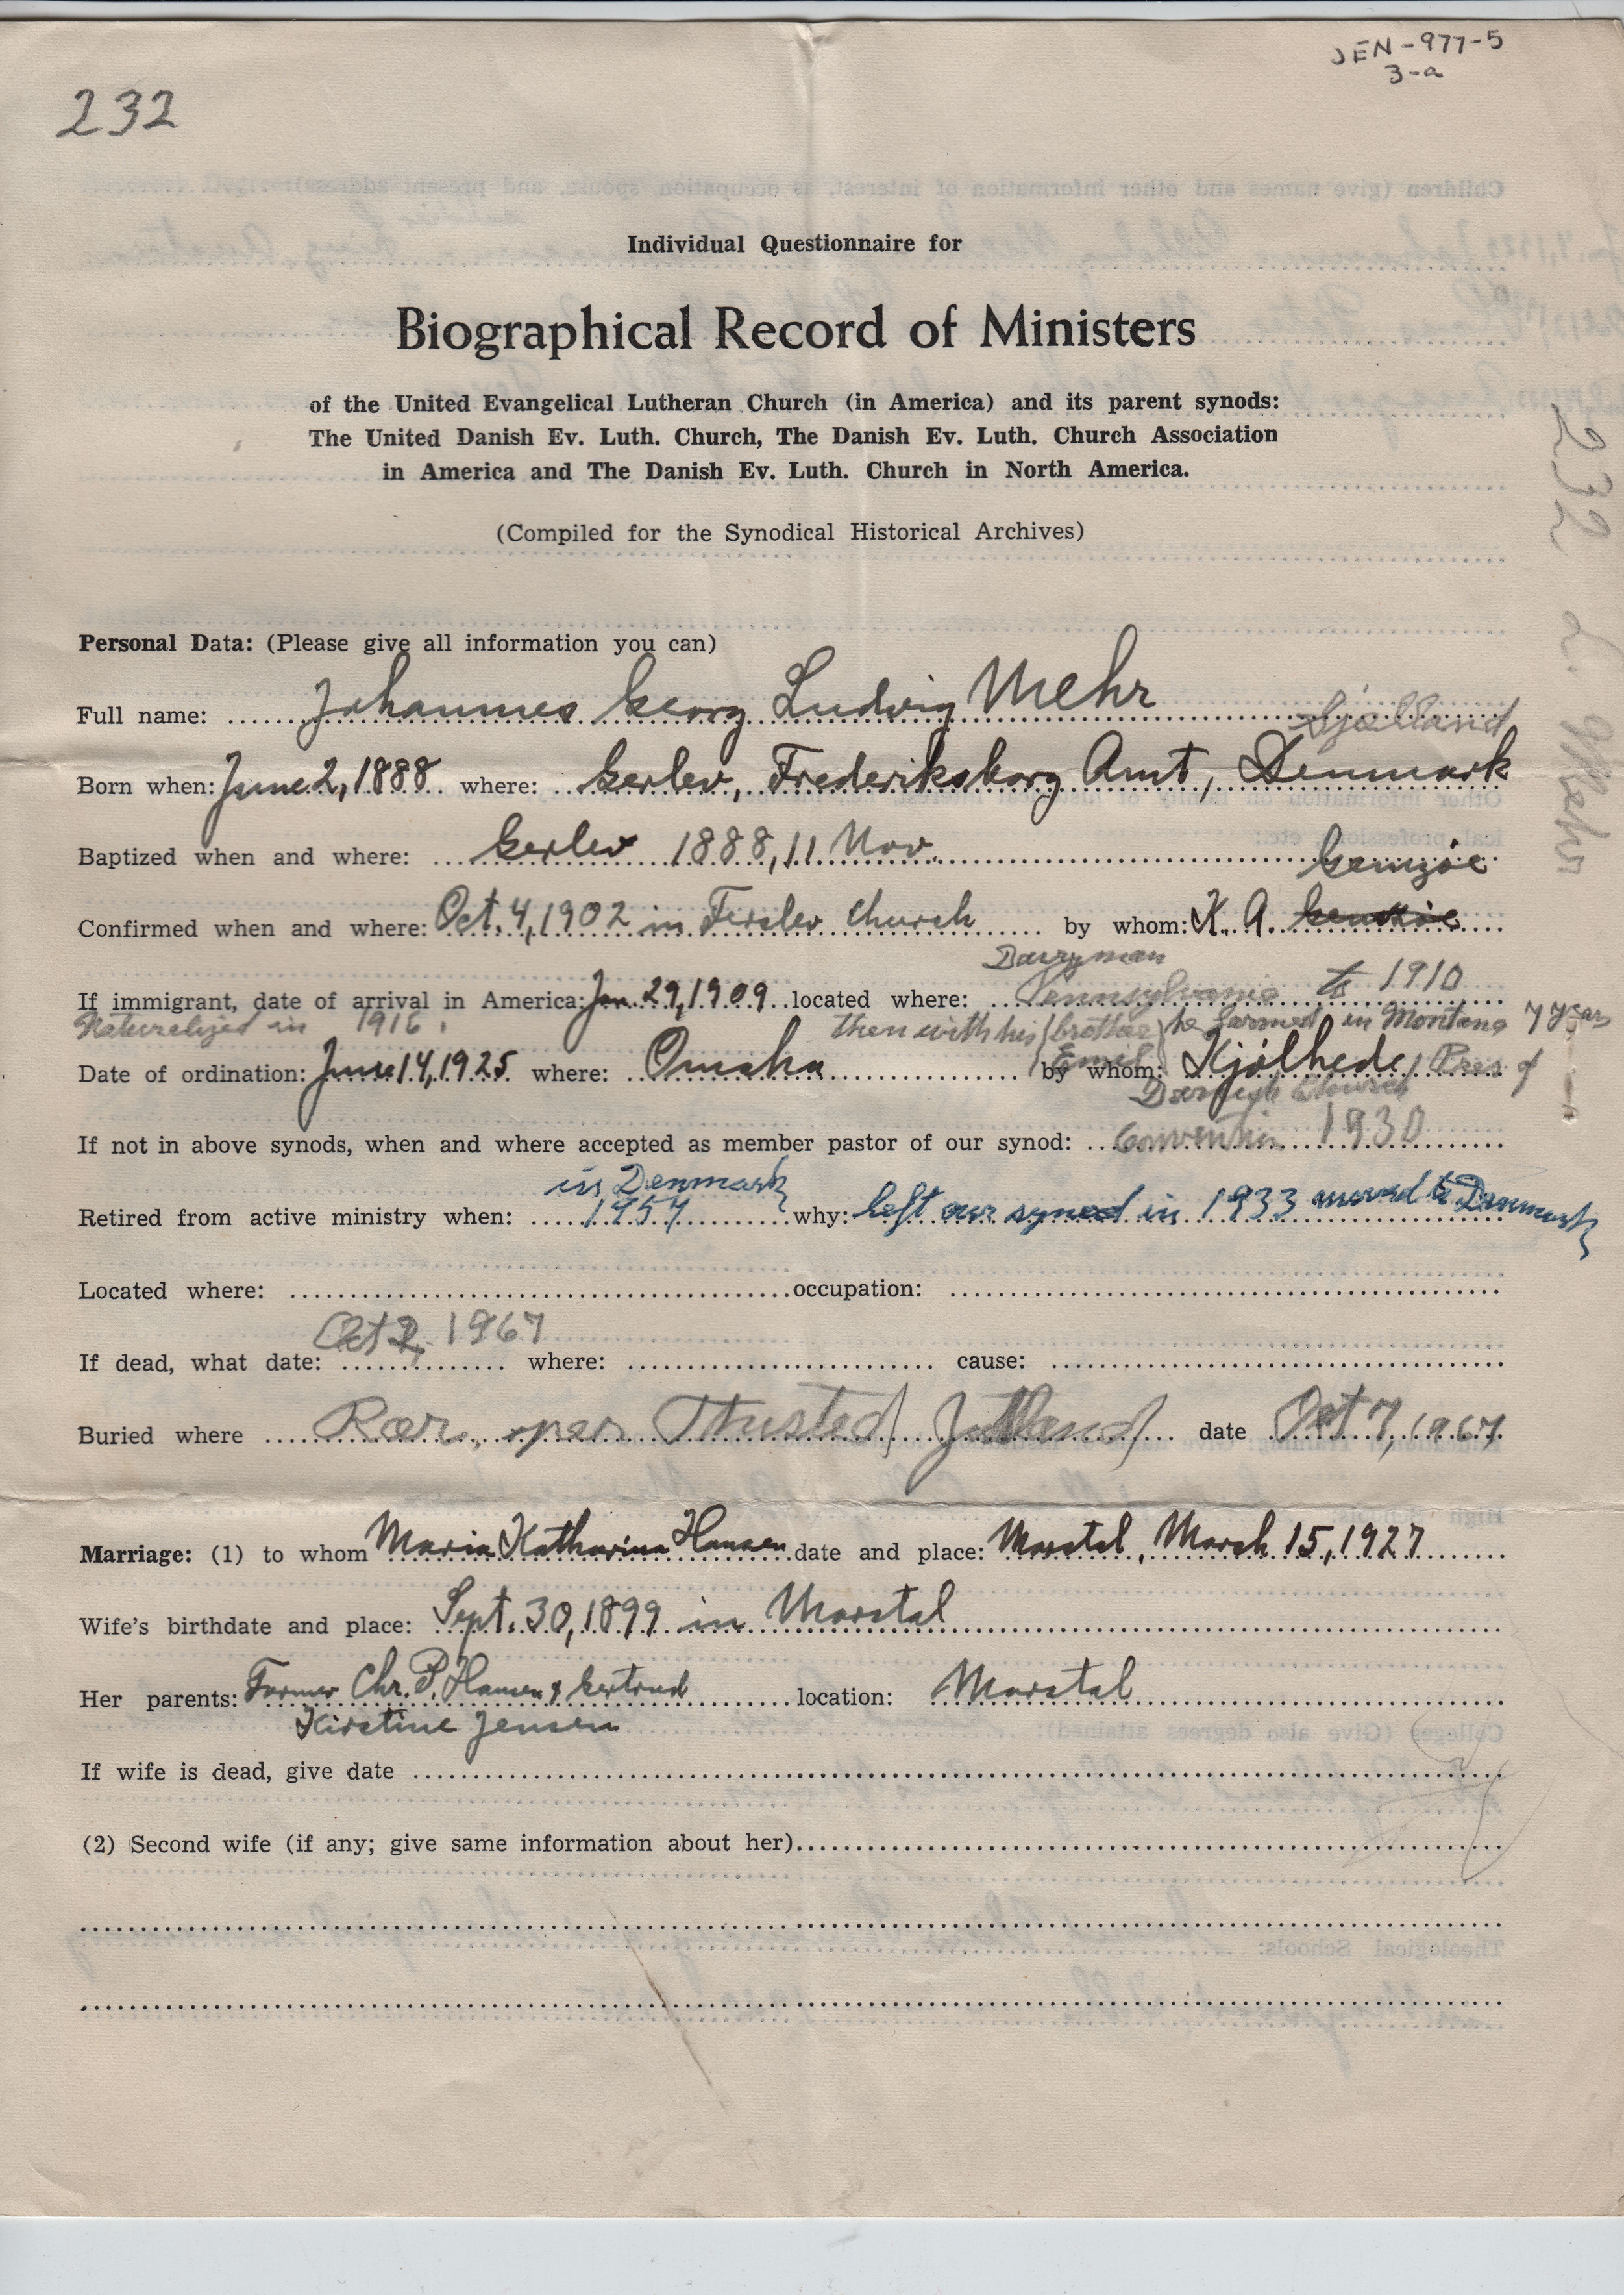 JEN-977-5
3-a
232
Individual Questionnaire for
Biographical Record of Ministers
of the United Evangelical Lutheran Church (in America) and its parent synods:
The United Danish Ev. Luth. Church, The Danish Ev. Luth. Church Association
in America and The Danish Ev. Luth. Church in North America.
(Compiled for the Synodical Historical Archives)
232 L. Mehr
Personal Data: (Please give all information you can)
Full name: Johannes Georg Ludvig Mehr
Sjælland
Born when: June 2, 1888 where: Gerlev, Frederiksborg Amt, Denmark
Baptized when and where: Gerlev 1888, 11 Nov.
Gemzöe
Confirmed when and where: Oct. 4, 1902 in Ferslev Church by whom: K. A.
Dairyman
If immigrant, date of arrival in America: Jan. 29, 1909 located where: Pennsylvania to 1910
Naturalized in 1916. then with his (brother Emil) he farmed in Montana 7 years
Date of ordination: June 14, 1925 where: Omaha by whom: Kjølhede, Pres of
Danish Church
If not in above synods, when and where accepted as member pastor of our synod: Convention 1930
in Denmark
Retired from active ministry when: 1957 why: left our synod in 1933 moved to Denmark
Located where: occupation:
If dead, what date: Oct 2, 1967 where: cause:
Buried where Rær, per Thisted Jutland date Oct 7, 1967
Marriage: (1) to whom Maria Katharina Hansen date and place: Marstal, March 15, 1927
Wife's birthdate and place: Sept. 30, 1899 in Marstal
Her parents: Farmer Chr. P. Hansen & Gertrud location: Marstal
Kirstine Jensen
If wife is dead, give date
(2) Second wife (if any; give same information about her)